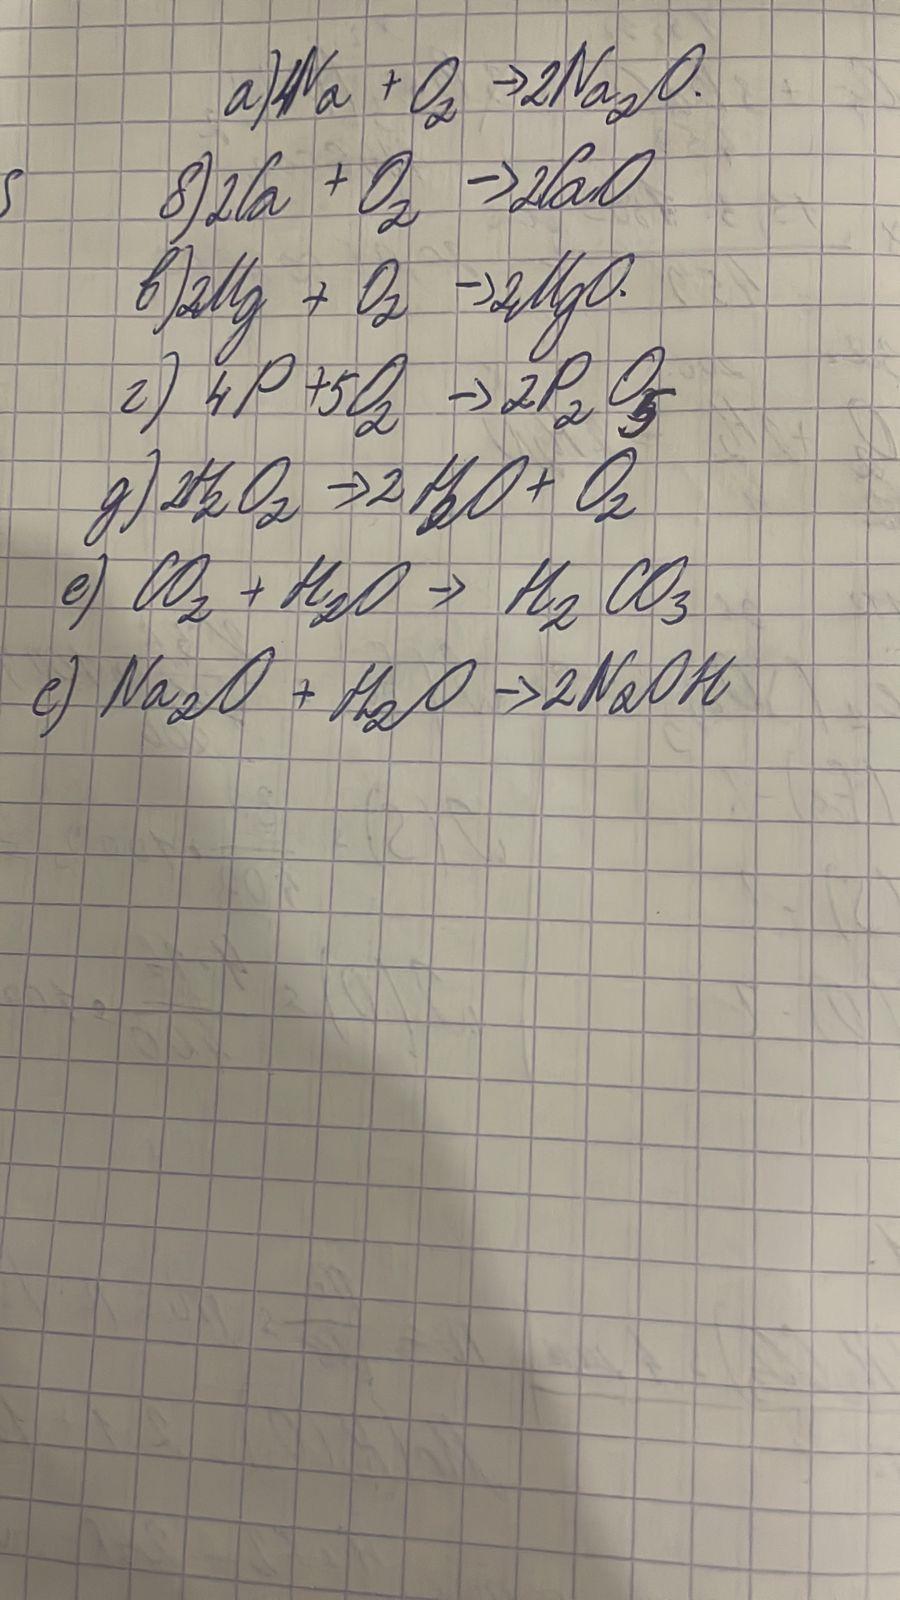 а) 4Na + O₂ → 2Na₂O.
б) 2Ca + O₂ → 2CaO
в) 2Mg + O₂ → 2MgO.
г) 4P + 5O₂ → 2P₂O₅
д) 2H₂O₂ → 2H₂O + O₂
е) CO₂ + H₂O → H₂CO₃
е) Na₂O + H₂O → 2NaOH